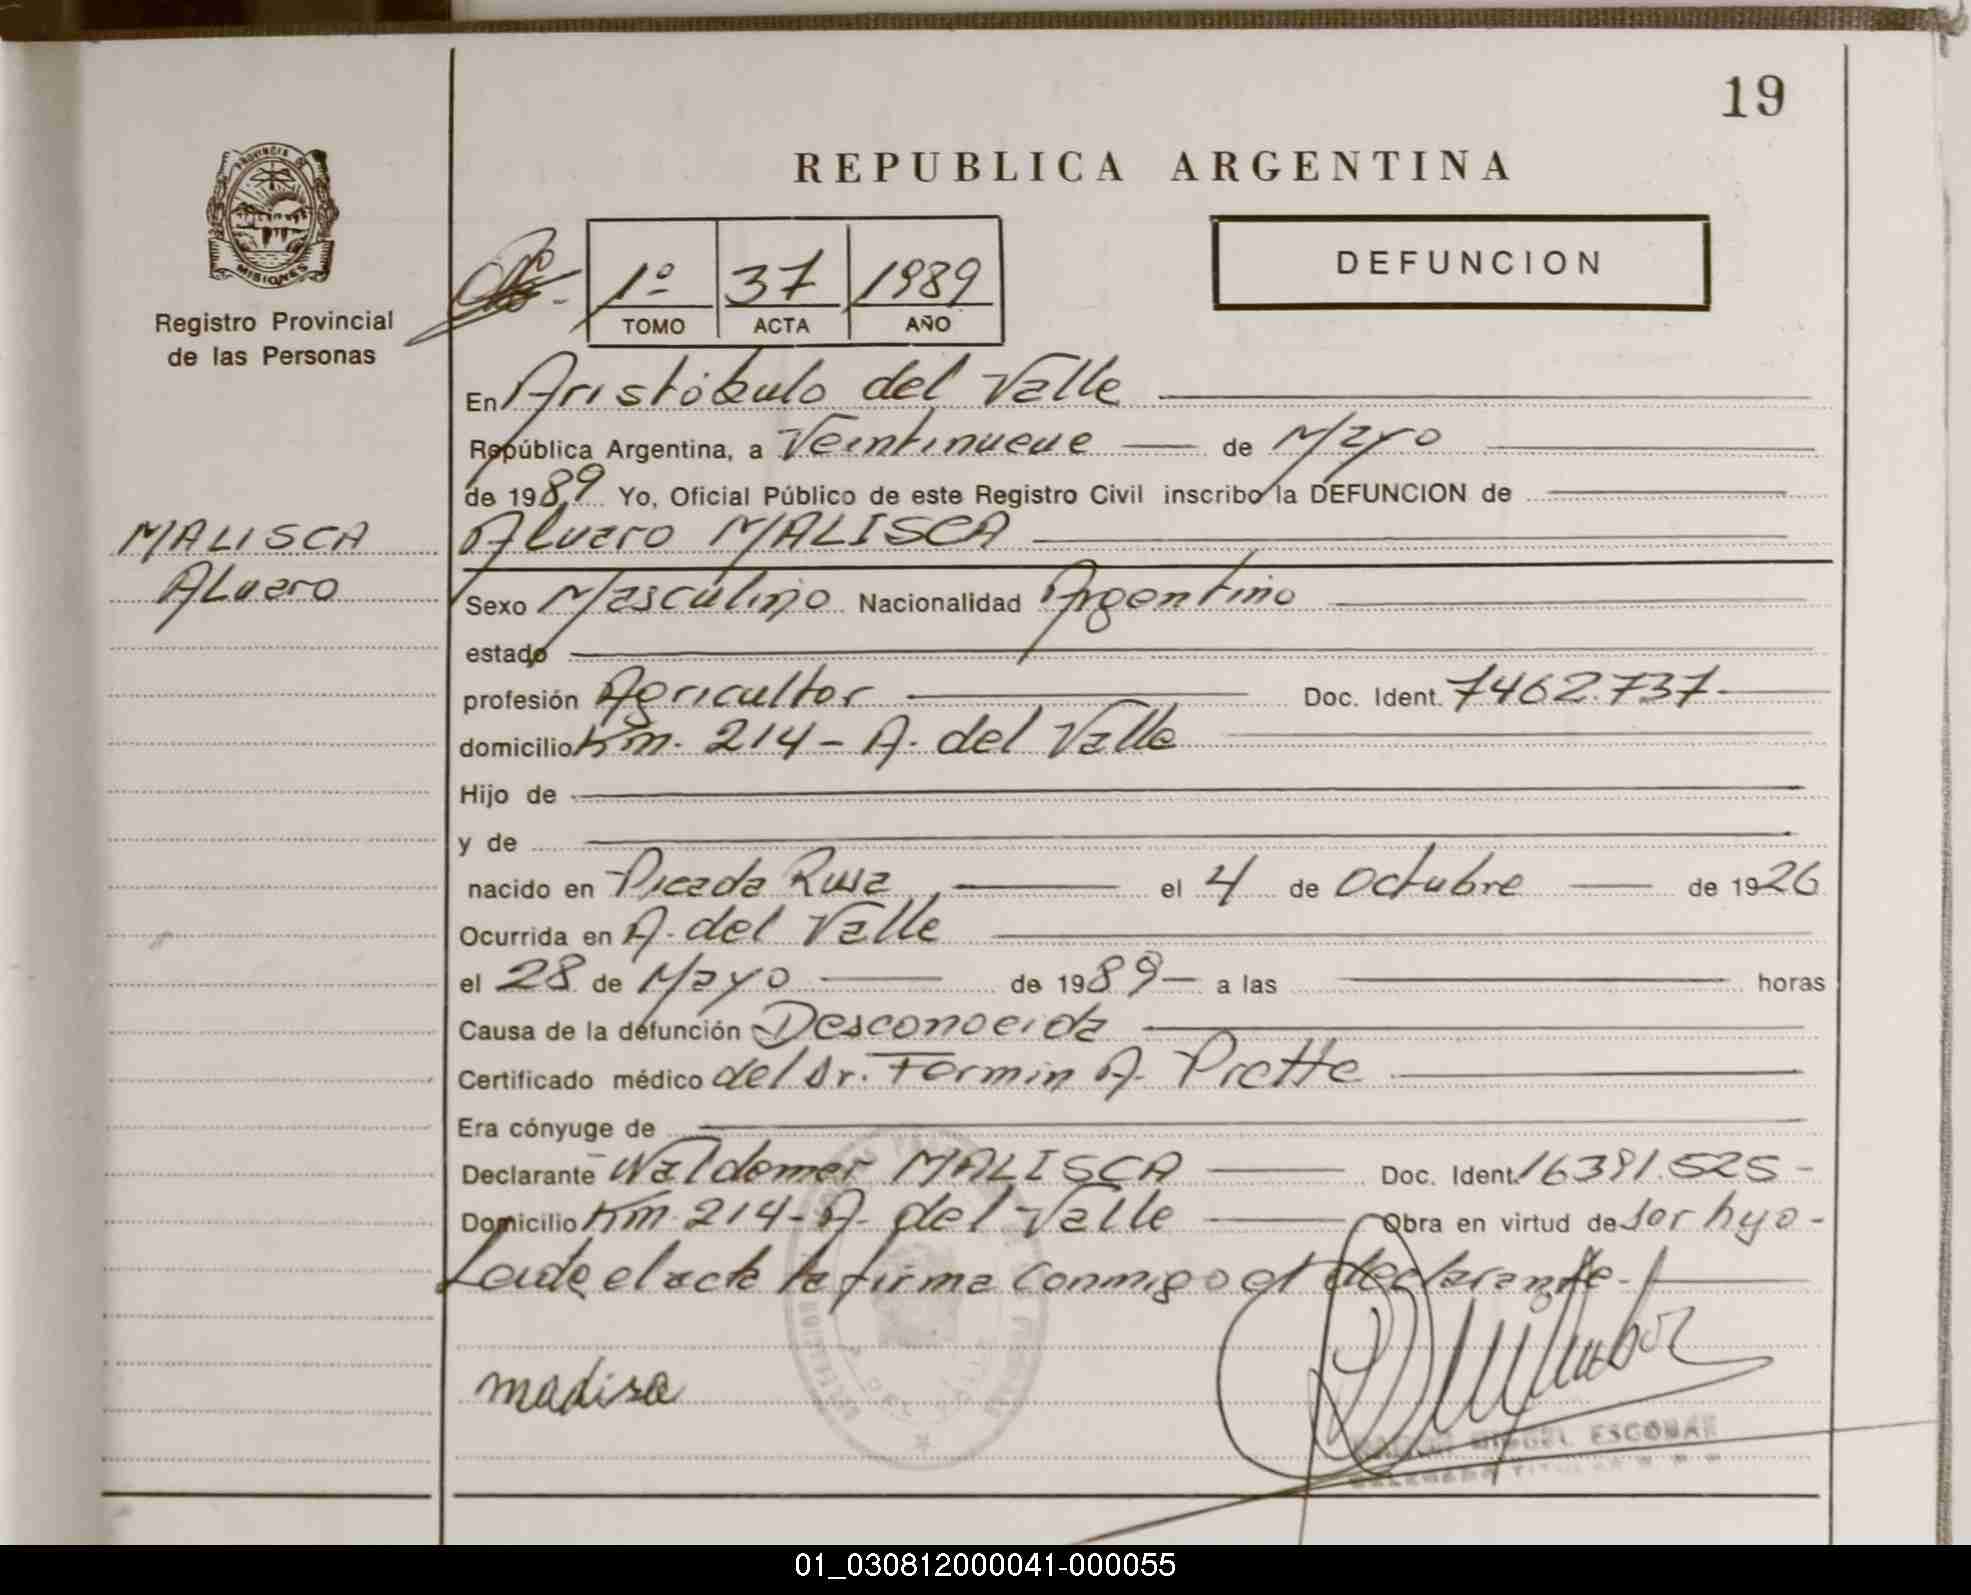 19
REPUBLICA ARGENTINA
PROVINCIA DE
MISIONES
Registro Provincial
de las Personas
1º 37 1989
TOMO ACTA AÑO
DEFUNCION
En Aristóbulo del Valle
República Argentina, a Veintinueve de Mayo
de 1989 Yo, Oficial Público de este Registro Civil inscribo la DEFUNCION de
MALISCA
Alvaro
Alvaro MALISCA
Sexo Masculino Nacionalidad Argentino
estado
profesión Agricultor Doc. Ident. 7462.737-
domicilio Km. 214 - A. del Valle
Hijo de
y de
nacido en Picada Rusa, el 4 de Octubre de 1926
Ocurrida en A. del Valle
el 28 de Mayo de 1989 - a las horas
Causa de la defunción Desconocida
Certificado médico del Dr. Fermin A. Prette
Era cónyuge de
Declarante Waldemar MALISCA Doc. Ident. 16391.525 -
Domicilio Km 214 - A. del Valle Obra en virtud de ser hijo -
Leida el acta la firma conmigo el declarante -
MIGUEL ESCOBAR
01_030812000041-000055